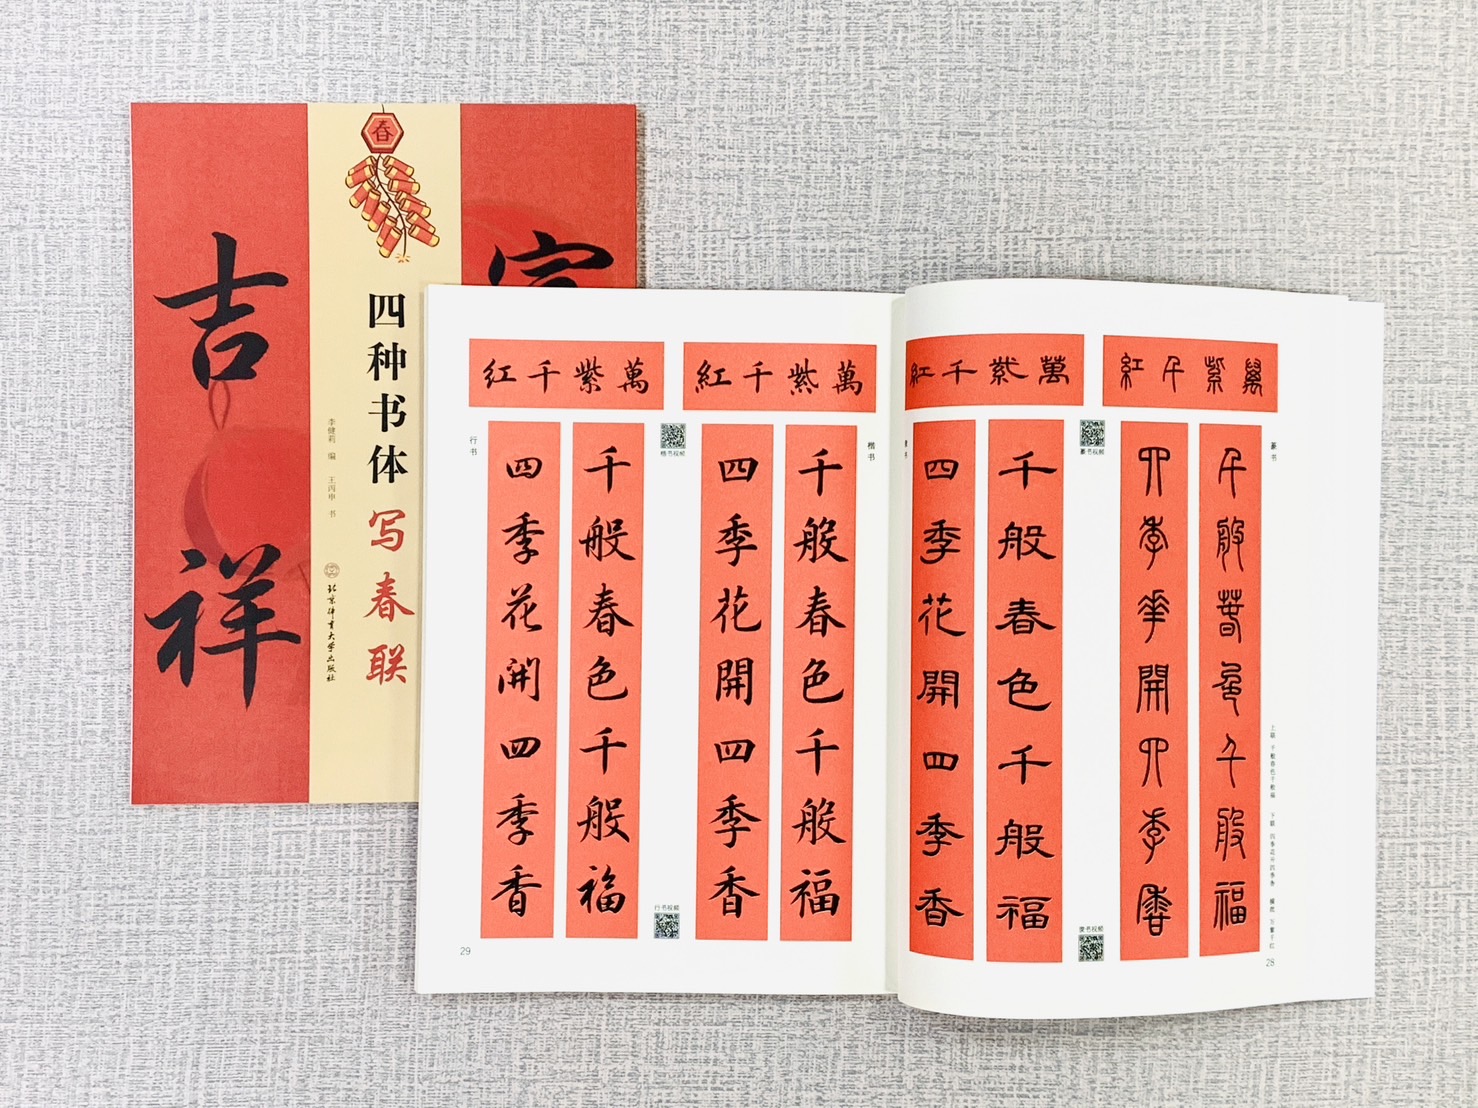 春
四种书体
写春联
吉祥
李健莉 编 王丙申 书
北京体育大学出版社
萬紫千紅
篆书
千般春色千般福
四季花開四季香
篆书视频
上联 千般春色千般福 下联 四季花开四季香 横批 万紫千红
28
萬紫千紅
千般春色千般福
四季花開四季香
隶书视频
萬紫千紅
楷书
千般春色千般福
四季花開四季香
楷书视频
萬紫千紅
千般春色千般福
四季花開四季香
行书
行书视频
29